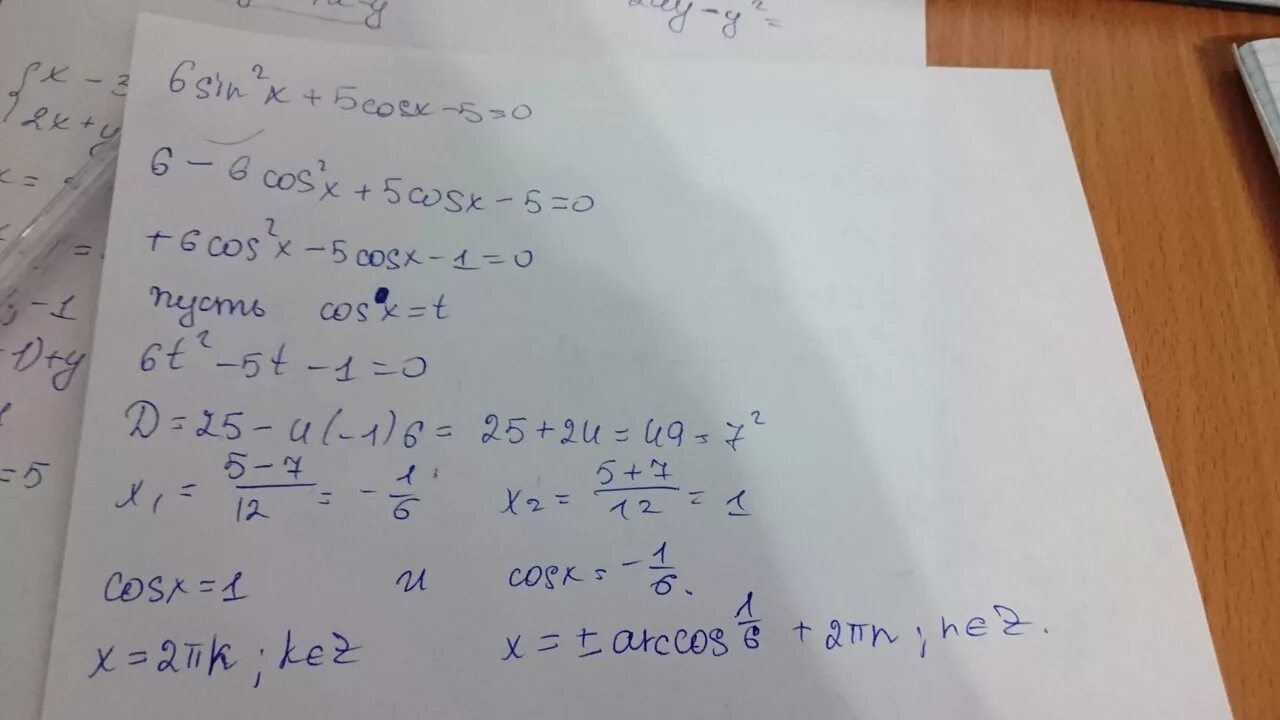 6sin²x + 5cosx - 5 = 0
6 - 6cos²x + 5cosx - 5 = 0
+6cos²x - 5cosx - 1 = 0
пусть cos x = t
6t² - 5t - 1 = 0
D = 25 - 4(-1)6 = 25 + 24 = 49 = 7²
x₁ = (5-7)/12 = -1/6 x₂ = (5+7)/12 = 1
cosx = 1 и cosx = -1/6.
x = 2πk ; k∈Z x = ± arccos 1/6 + 2πn ; n∈Z.
{x - 3
2x + y
x =
-1
1)+y
=5
-y² =